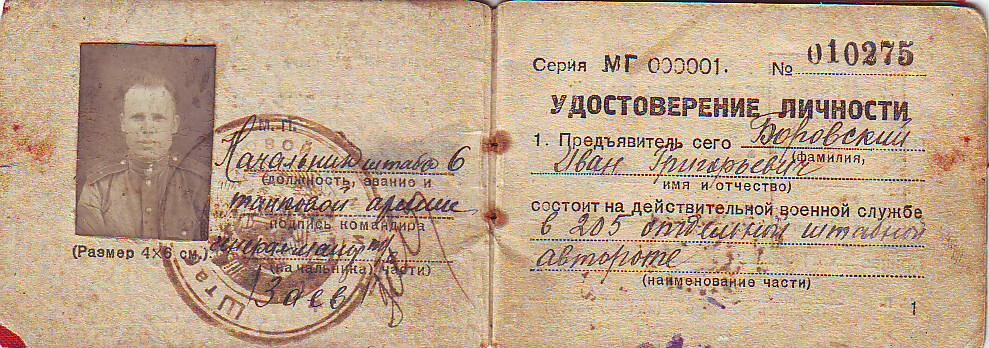 М. П.
Начальник штаба 6
(должность, звание и
танковой армии
подпись командира
генерал-майор
(начальника) части)
(Размер 4×6 см.)
Штаб
Серия МГ 000001. № 010275
УДОСТОВЕРЕНИЕ ЛИЧНОСТИ
1. Предъявитель сего Боровский
(фамилия,
Иван Григорьевич
имя и отчество)
состоит на действительной военной службе
в 205 отдельной штабной
автороте
(наименование части)
1